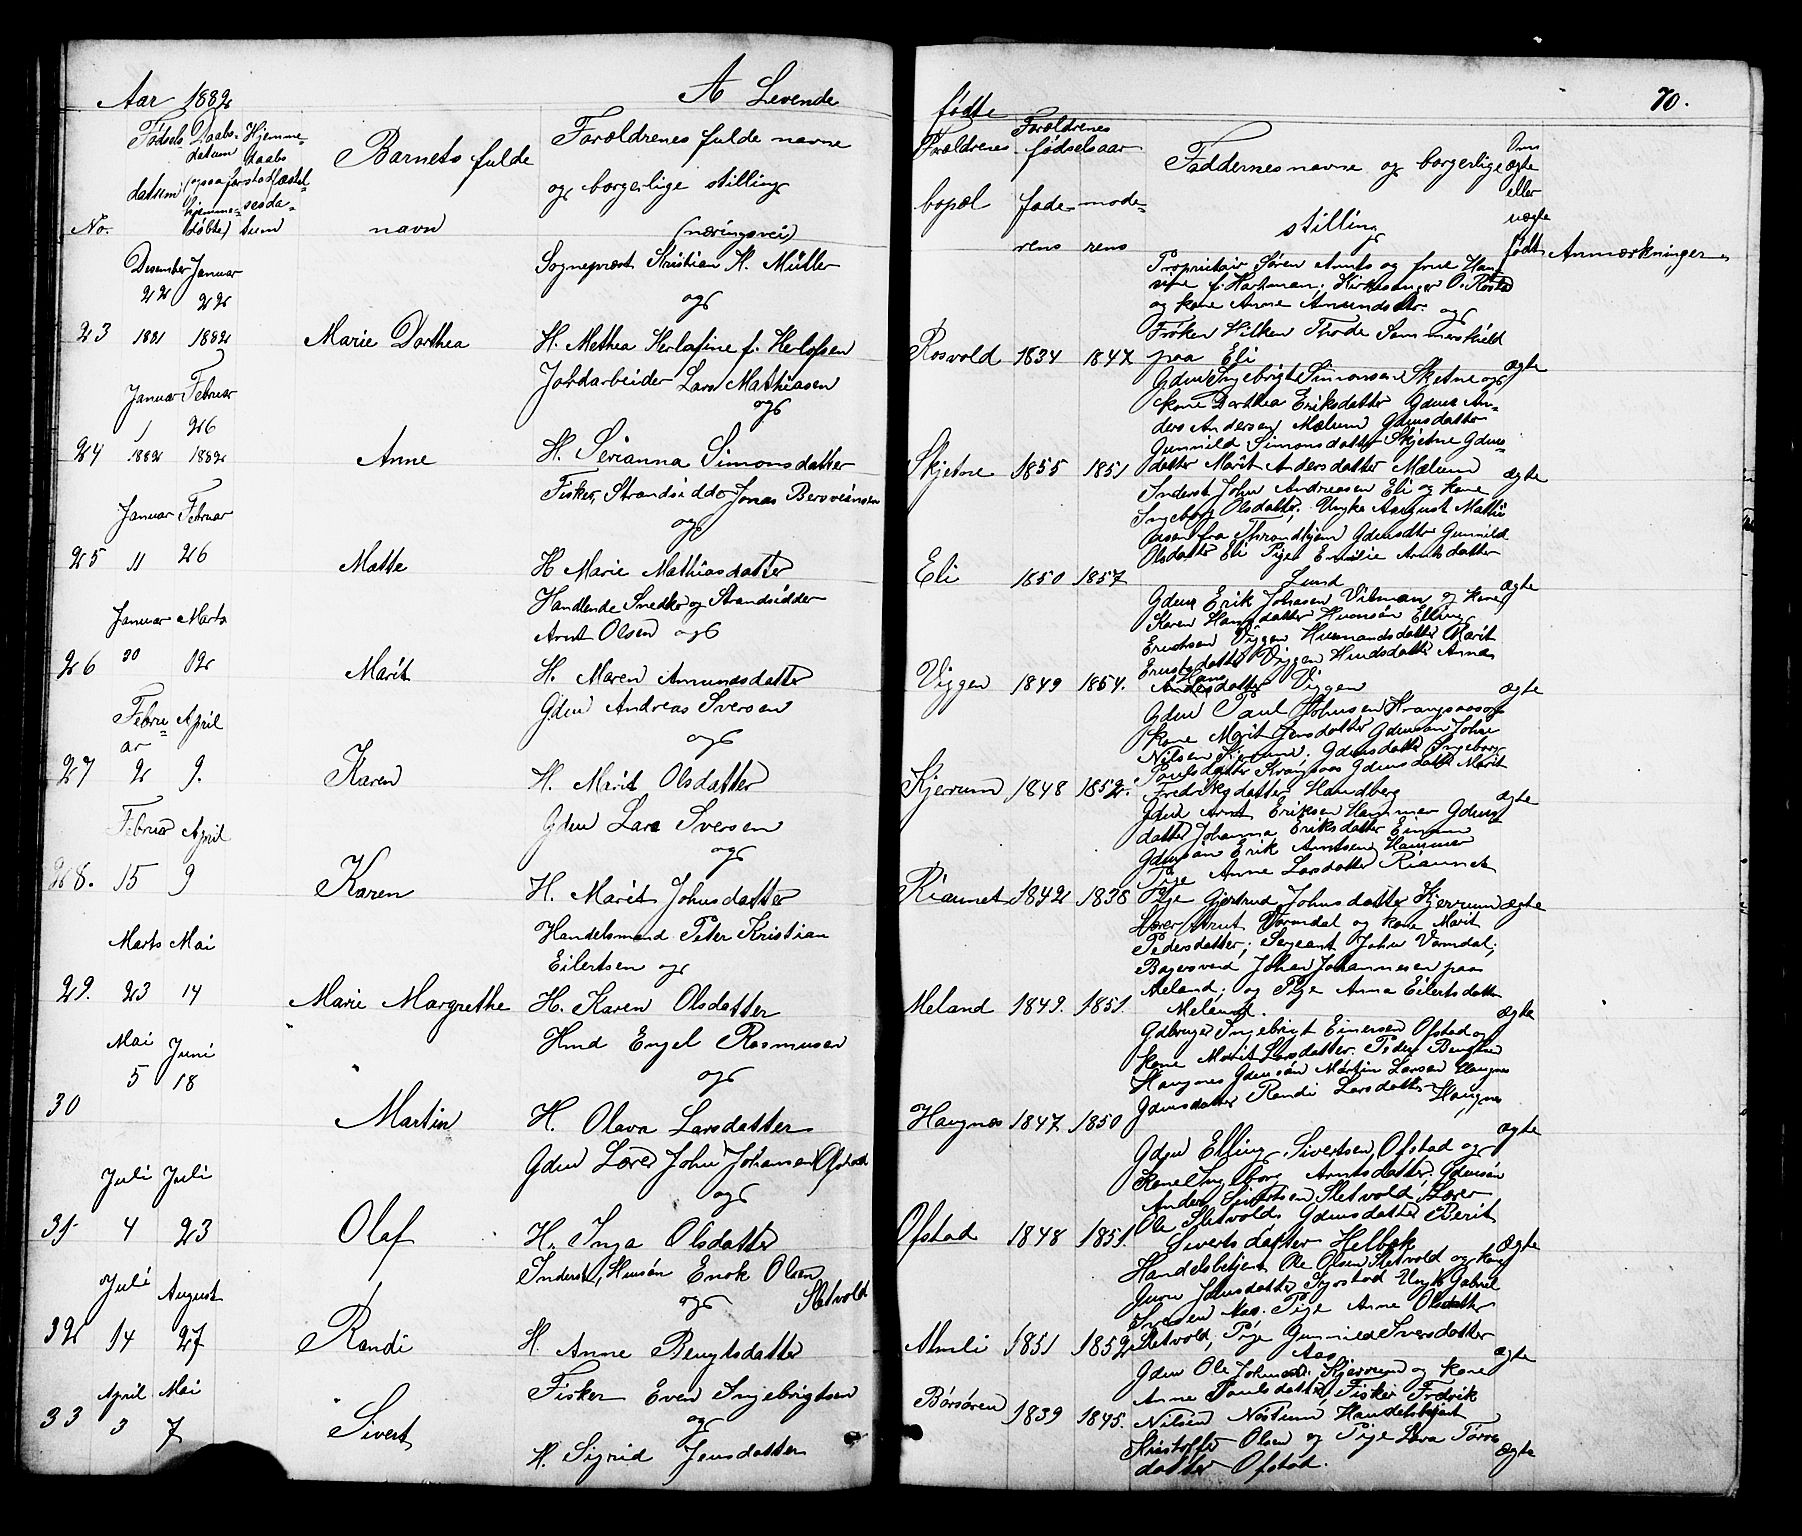 Aar 1882
A Levende
fødte
70.
No.
Fødsels datum
Daabs datum (ogsaa for hjemme døbte)
Hjemme daabs stadfæstelsesdatum
Barnets fulde navn
Forældrenes fulde navne og borgerlige stilling (næringsvei)
Forældrenes bopæl
Forældrenes fødselsaar
faderens
moderens
Faddernes navne og borgerlige stilling
Om ægte eller uægte født
Anmærkninger
23
Desember 22 1881
Januar 22 1882
Marie Dorthea
Sogneprest Kristian H. Müller
og
H. Methea Herlafine f. Herlofsen
Rosvold 1834 1847
Proprietair Søren Arnts og frue Han-
sine f. Hartman; Kirkesanger O. Rostad
og kone Anne Amundsdtr. og
Frøken Vilken Thode Sommerskield
paa Eli
ægte
24
Januar 1 1882
Februar 26 1882
Anne
Jordarbeider Lars Mathiasen
og
H. Serianna Simonsdatter
Skjetne 1855 1851
Gdm Ingebrigt Simonsen Sketne og
kone Dorthea Eriksdatter Gdms An-
ders Andersen Mælum Gdmsdatter
Gunnild Simonsdatter Skjetne Gdms-
datter Marit Andersdatter Mælum
ægte
25
Januar 11
Februar 26
Mette
Fisker, Strandsidder Jonas
og
H Marie Mathiasdatter
Eli 1850 1857
Inderst John Andreasen Eli og kone
Ingeborg Olsdatter; Ungke August Mathi
asen fra Throndhjem Gdmsdtr Gunnild
Olsdatter Eli Pige Emilie Arntsdatter
Lund
ægte
26
Januar 30
Marts 12
Marit
Handlende Snedker og Strandsidder
Arnt Olsen og
H. Maren Amundsdatter
Viggen 1849 1854.
Gdm Erik Johnsen Vilman og kone
Karen Hansdatter Husmsøn Elling
Erichsen Viggen Husmandsdatter Marit
Ernstsdatter Viggen Hmdsdatter Anna
Hans
Andersdatter Viggen
ægte
27
Februar 2
April 9.
Karen
Gdm Andreas Iversen
og
H. Marit Olsdatter
Kjerrum 1848 1852.
Gdm Paul Johnsen Krangsaas og
kone Marit Jensdatter Gdmsøn Johne
Nilsen Kjerrum; Gdmsdatter Ingeborg
Paulsdatter Krangsaas Gdmsdatt Marit
Fredriksdatter Handberg
ægte
28.
Februar 15
April 9
Karen
Gdm Lars Iversen
og
H. Marit Johnsdatter
Rianet 1842 1838
Gdm Arnt Eriksen Hammer Gdms-
datter Johanna Eriksdatter
Gdmsøn Erik Arntsen Hammer
Pige Anne Larsdatter Rianet
Pige Gjertrud Johnsdatter Kjerrum
ægte
29.
Marts 23
Mai 14
Marie Margrethe
Handelsmand Peter Kristian
Eilertsen og
H. Karen Olsdatter
Meland 1849. 1851.
Lærer Arnt Vormdal og kone Marit
Pedersdatter; Sergeant John Vormdal;
Bagersvend Johan Johannesen paa
Meland; og Pige Anna Eilertsdatter
Meland.
ægte
30
Mai 5
Juni 18
Martin
Hmd Engel Rasmusen
og
H. Olava Larsdatter
Haugnes 1847 1850
Gdbruger Ingebrigt Einersen Ofstad og
kone Marit Larsdatter. Peder Bengtsen
Haugnes Gdmsøn Martin Larsen Haugnes
Gdmsdatter Randi Larsdatter Haugnes
ægte
31
Juli 4
Juli 23
Olaf
Gdm Lærer John Johansen Ofstad
og
H. Inga Olsdatter
Ofstad 1848 1851.
Gdm Elling Sivertsen Ofstad og
Kone Ingeborg Arntsdatter; Gdmsøn
Anders Sivertsen Sletvold, Lærer
Ole Sletvold, Gdmsdatter Berit
Sivertsdatter Helbæk
ægte
32
Juli 14
August 27
Randi
Inderst, Husmsøn Enok Olsen
og Sletvold
H Anne Bengtsdatter
Almli 1851 1852
Handelsbetjent Ole Olsen Sletvold og kone
Guru Jonsdatter Sjorstad Ungk Gabriel
Iversen Aas. Pige Anne Olsdatter
Sletvold; Pige Gunnild Iversdatter
Aas
ægte
33
April 3
Mai 7
Sivert
Fisker Even Ingebrigtsen
og
H. Sigrid Jensdatter
Børsøren 1839 1845.
Gdm Ole Johnsen Kjerrum og kone
Anne Paulsdatter, Fisker Fredrik
Nilsen Nostum, Handelsbetjent
Kristoffer Olsen og Pige Lava Tørres
datter Ofstad.
ægte